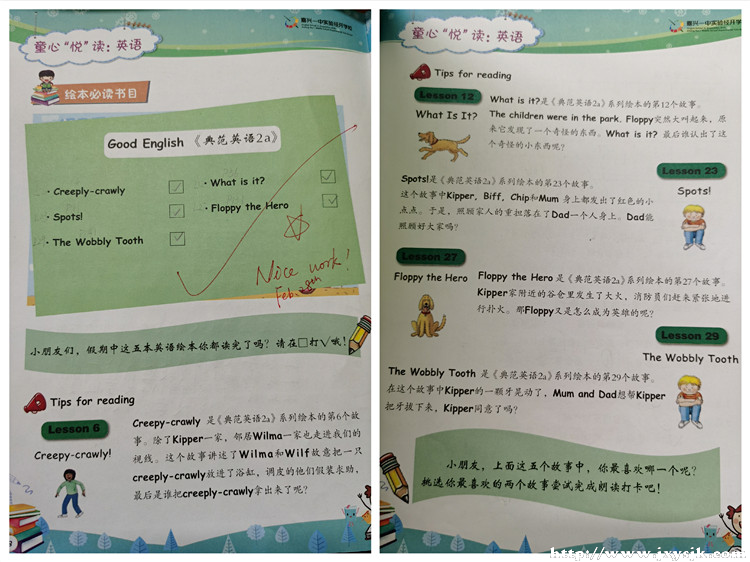 童心“悦”读：英语
嘉兴一中实验经开学校
绘本必读书目
Good English 《典范英语2a》
· Creeply-crawly
· Spots!
· The Wobbly Tooth
· What is it?
· Floppy the Hero
Nice work!
Feb. 28th
小朋友们，假期中这五本英语绘本你都读完了吗？请在□打√哦！
Tips for reading
Lesson 6
Creepy-crawly!
Creepy-crawly 是《典范英语2a》系列绘本的第6个故
事。除了Kipper一家，邻居Wilma一家也走进我们的
视线。这个故事讲述了Wilma和Wilf故意把一只
creeply-crawly放进了浴缸，调皮的他们假装求助，
最后是谁把creeply-crawly拿出来了呢？
童心“悦”读：英语
嘉兴一中实验经开学校
Tips for reading
Lesson 12
What Is It?
What is it?是《典范英语2a》系列绘本的第12个故事。
The children were in the park. Floppy突然大叫起来，原
来它发现了一个奇怪的东西。What is it? 最后谁认出了这
个奇怪的小东西呢？
Lesson 23
Spots!
Spots!是《典范英语2a》系列绘本的第23个故事。
这个故事中Kipper, Biff, Chip和Mum 身上都发出了红色的小
点点。于是，照顾家人的重担落在了Dad一个人身上。Dad能
照顾好大家吗？
Lesson 27
Floppy the Hero
Floppy the Hero 是《典范英语2a》系列绘本的第27个故事。
Kipper家附近的谷仓里发生了大火，消防员们赶来紧张地进
行扑火。那Floppy又是怎么成为英雄的呢？
Lesson 29
The Wobbly Tooth
The Wobbly Tooth 是《典范英语2a》系列绘本的第29个故事。
在这个故事中Kipper的一颗牙晃动了，Mum and Dad想帮Kipper
把牙拔下来，Kipper同意了吗？
小朋友，上面这五个故事中，你最喜欢哪一个呢？
挑选你最喜欢的两个故事尝试完成朗读打卡吧！
http://www.jxyzjk.com